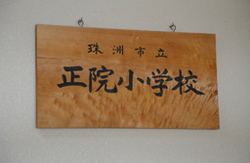 珠洲市立
正院小学校